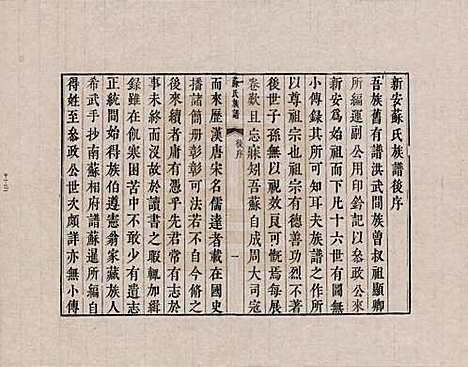 新安蘇氏族譜後序
吾族舊有譜洪武間族曾叔祖顯卿
所編運副公用印鈐記以叅政公為
新安為始祖而下凡十六世有圖而無
小傳錄其可耳夫族譜之作所
以尊祖宗也祖宗有德善功烈不著
後世子孫無以視效良可慨焉每展
卷歎且忘寐矧吾蘇自成周大司寇
蘇氏族譜
後序
一
而來歷漢唐宋名儒達者載在國史
播諸簡册彰彰可法若不自今脩之
後來續者庸有愚乎先君常有志於
事未終而沒於讀書之暇輒加緝
錄雖在飢寒困苦中不敢少有遺志
正統間始得族伯遵憲翁家藏族人
希武手抄南蘇相府譜蘇暹所編自
得姓至叅政公世次頗詳亦無小傳